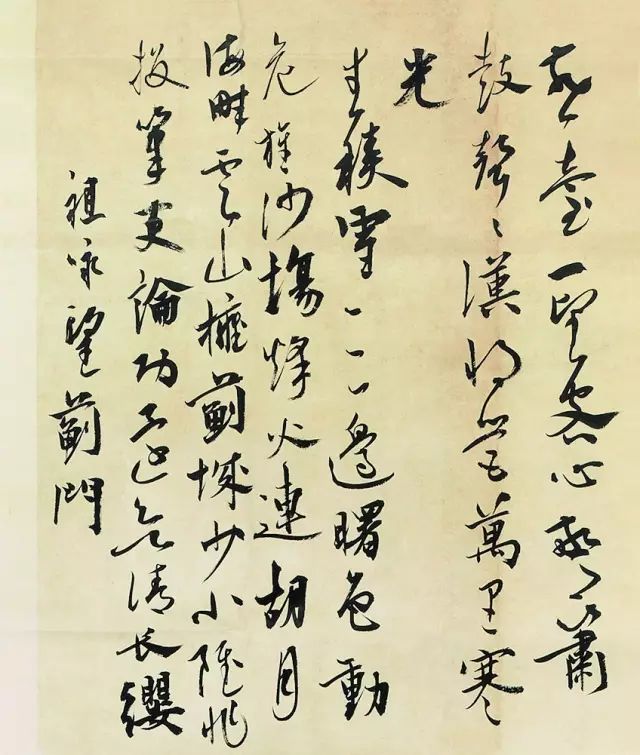 燕臺一望客心驚簫
鼓聲〻漢將營萬里寒
光
生積雪三邊曙色動
危旌沙場烽火連胡月
海畔雲山擁薊城少小雖非
投筆吏論功還欲請長纓
祖咏望薊門